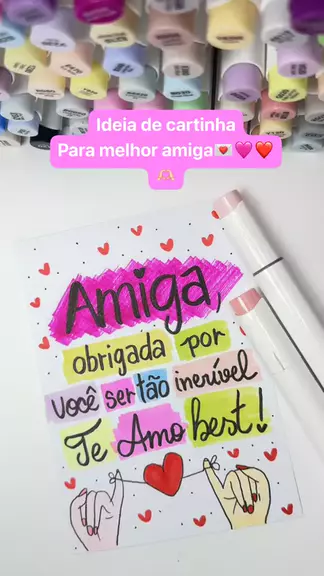 Ideia de cartinha
Para melhor amiga💌💜❤️
🫶🏻
Amiga,
obrigada por
você ser tão incrível
Te Amo best!